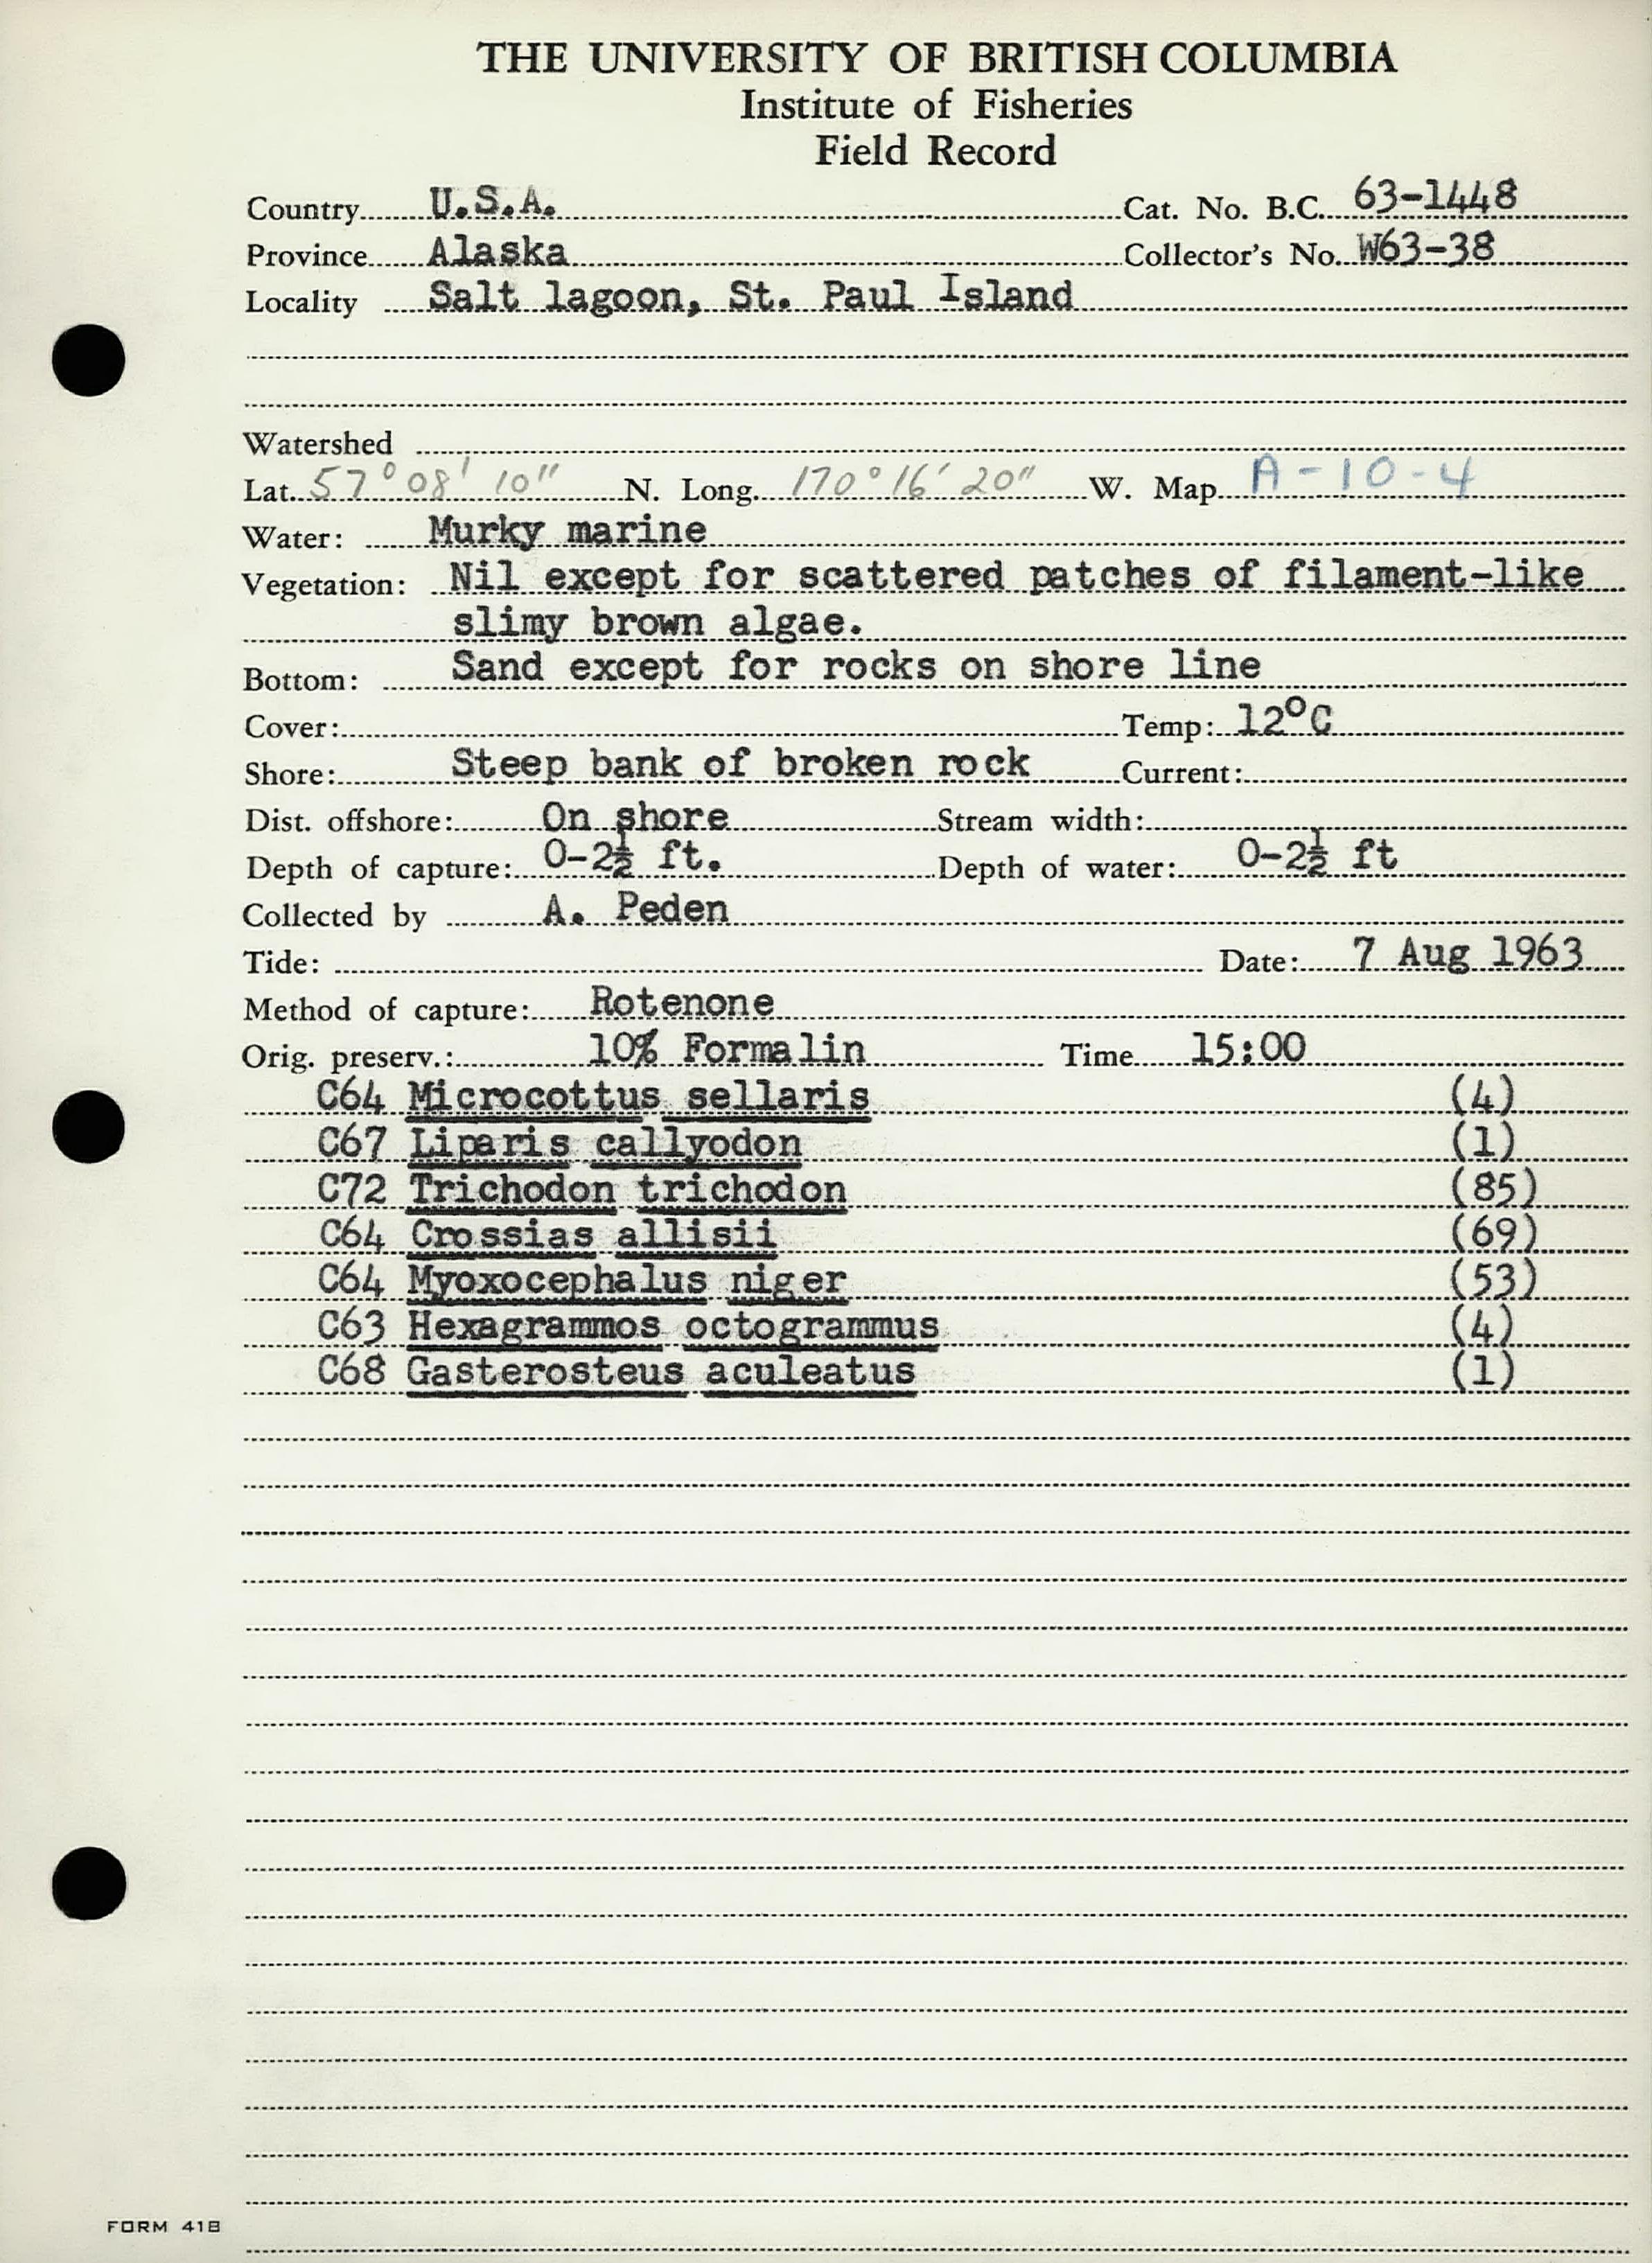 THE UNIVERSITY OF BRITISH COLUMBIA
Institute of Fisheries
Field Record
Country U.S.A. Cat. No. B.C. 63-1448
Province Alaska Collector's No. W63-38
Locality Salt lagoon, St. Paul Island
Watershed
Lat. 57° 08' 10" N. Long. 170° 16' 20" W. Map A-10-4
Water: Murky marine
Vegetation: Nil except for scattered patches of filament-like
slimy brown algae.
Bottom: Sand except for rocks on shore line
Cover: Temp: 12°C
Shore: Steep bank of broken rock Current:
Dist. offshore: On shore Stream width:
Depth of capture: 0-2½ ft. Depth of water: 0-2½ ft
Collected by A. Peden
Tide: Date: 7 Aug 1963
Method of capture: Rotenone
Orig. preserv.: 10% Formalin Time 15:00
C64 Microcottus sellaris (4)
C67 Liparis callyodon (1)
C72 Trichodon trichodon (85)
C64 Crossias allisii (69)
C64 Myoxocephalus niger (53)
C63 Hexagrammos octogrammus (4)
C68 Gasterosteus aculeatus (1)
FORM 41B